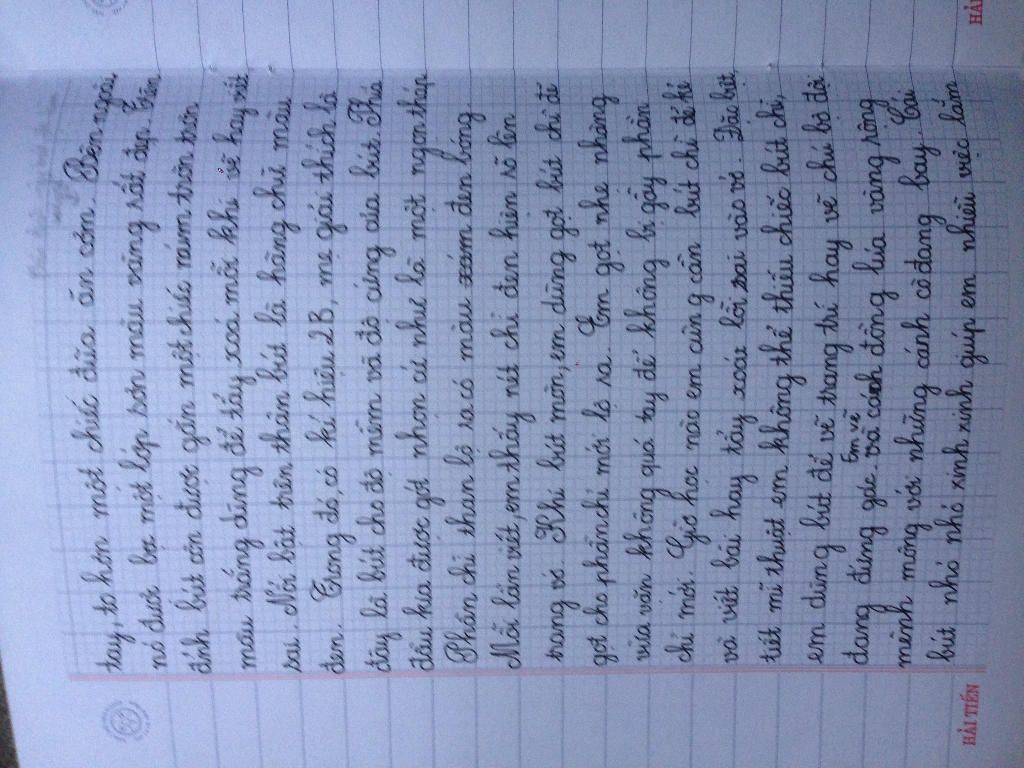 tay, to hơn một chiếc đũa ăn cơm. Bên ngoài
nó được bọc một lớp sơn màu vàng rất đẹp. Trên
đỉnh bút còn được gắn một chiếc núm tròn trôn
màu trắng dùng để tẩy xoá mỗi khi vẽ hay viết
sai. Nổi bật trên thân bút là hàng chữ màu
đen. Trong đó, có kí hiệu 2B, mẹ giải thích là
đây là bút cho độ mềm và độ cứng của bút. Phía
đầu kia được gọt nhọn cứ như là một ngọn tháp
Phần chì than lộ ra có màu xám đen bóng.
Mỗi lần viết, em thấy nét chì đen hiện rõ lên
trang vở. Khi bút mòn, em dùng gọt bút chì để
gọt cho phần chì mới lộ ra. Em gọt nhẹ nhàng
vừa vặn không quá tay để không bị gãy phần
chì mới. Giờ học nào em cũng cần bút chì để kẻ
và viết bài hay tẩy xoá lỗi sai vào vở. Đặc biệt
tiết mĩ thuật em không thể thiếu chiếc bút chì,
em dùng bút để vẽ trang trí hay vẽ chú bộ đội
Em vẽ
đang đứng gác. và cánh đồng lúa vàng rộng
mênh mông với những cánh cò đang bay. Cái
bút nhỏ nhỏ xinh xinh giúp em nhiều việc lắm
HẢI TIẾN
HẢI